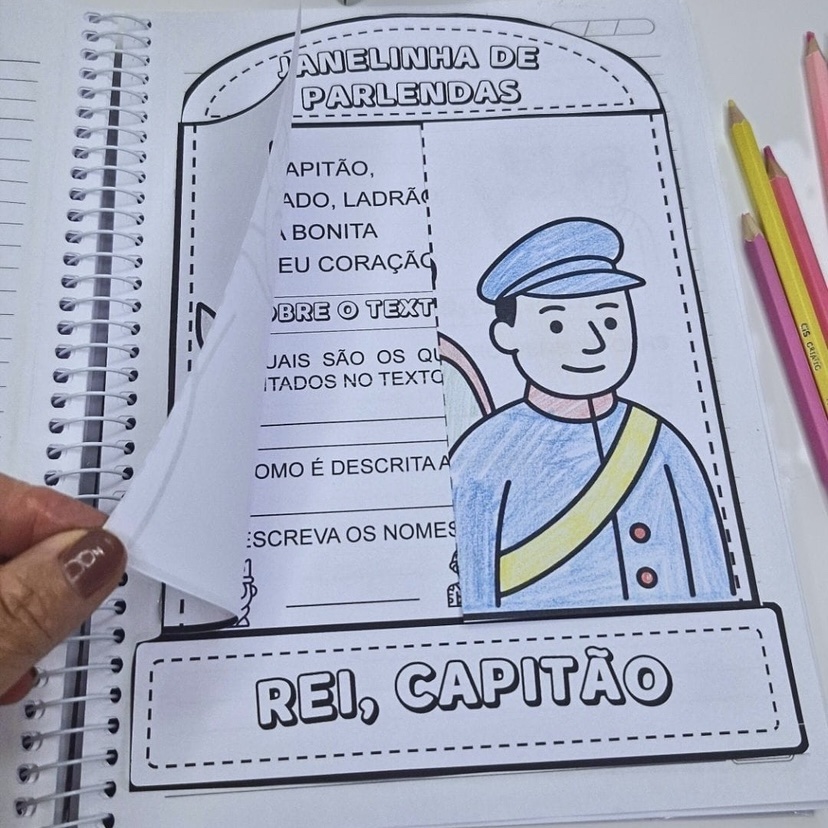 JANELINHA DE
PARLENDAS
APITÃO,
ADO, LADRÃO
A BONITA
EU CORAÇÃO
OBRE O TEXT
UAIS SÃO OS QU
ITADOS NO TEXTO
OMO É DESCRITA A
ESCREVA OS NOMES
REI, CAPITÃO